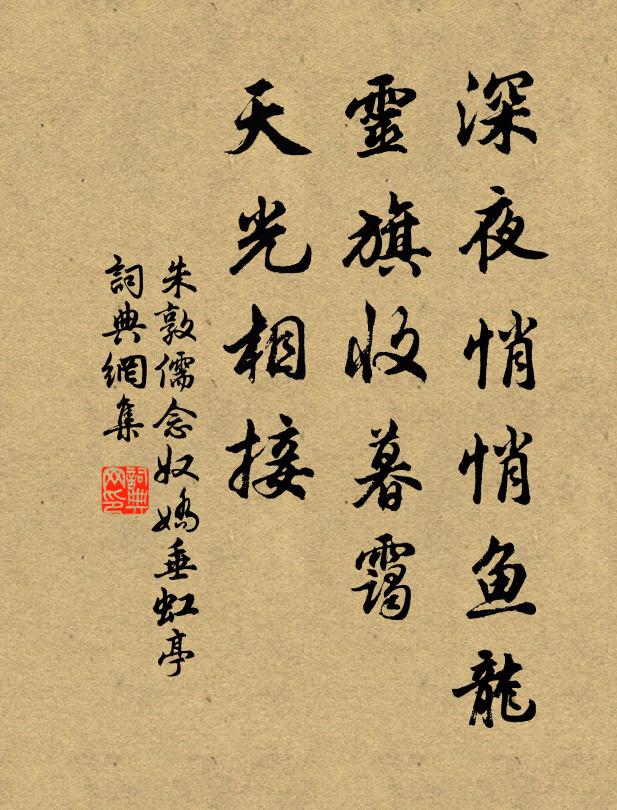 深夜悄悄鱼龍
靈旗收暮靄
天光相接
朱敦儒念奴嬌垂虹亭
詞典網集
詞典网印